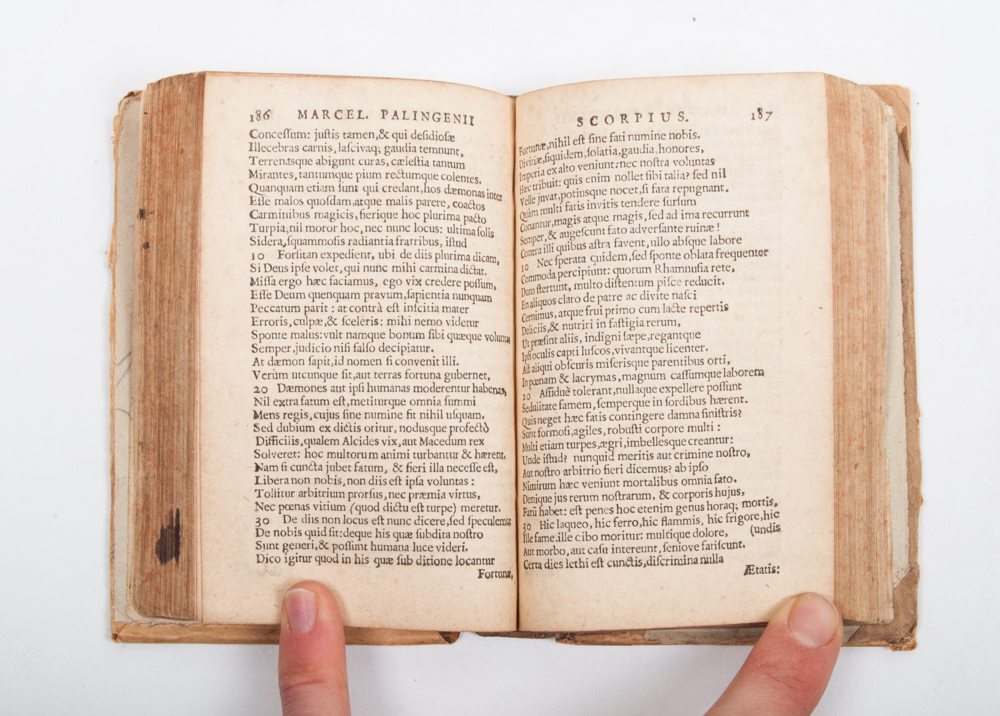 186 MARCEL. PALINGENII
Concessum: justis tamen,& qui desidiosæ
Illecebras carnis, lascivaq; gaudia temnunt,
Terrenasque abigunt curas, cælestia tantum
Mirantes, tantumque pium rectumque colentes.
Quanquam etiam sunt qui credant,hos dæmonas inter
Esse malos quosdam,atque malis parere, coactos
Carminibus magicis, fierique hoc plurima pacto
Turpia,nil moror hoc, nec nunc locus: ultima solis
Sidera, squammosis radiantia fratribus, istud
10 Forsitan expedient, ubi de diis plurima dicam,
Si Deus ipse volet, qui nunc mihi carmina dictat.
Missa ergo hæc faciamus, ego vix credere possum,
Esse Deum quenquam pravum,sapientia nunquam
Peccatum parit: at contrà est inscitia mater
Erroris, culpæ,& sceleris: mihi nemo videtur
Sponte malus: vult namque bonum sibi quæque voluntas
Semper, judicio nisi falso decipiatur.
At dæmon sapit,id nomen si convenit illi.
Verùm utcunque sit,aut terras fortuna gubernet,
20 Dæmones aut ipsi humanas moderentur habenas,
Nil extra fatum est,metiturque omnia summi
Mens regis, cujus sine numine fit nihil usquam.
Sed dubium ex dictis oritur, nodusque profectò
Difficilis, qualem Alcides vix, aut Macedum rex
Solveret: hoc multorum animi turbantur & hærent.
Nam si cuncta jubet fatum, & fieri illa necesse est,
Libera non nobis, non diis est ipsa voluntas:
Tollitur arbitrium prorsus, nec præmia virtus,
Nec pœnas vitium (quod dictu est turpe) meretur.
30 De diis non locus est nunc dicere, sed speculemur
De nobis quid sit: deque his quæ subdita nostro
Sunt generi,& possunt humana luce videri.
Dico igitur quod in his quæ sub ditione locantur
Fortunæ,
SCORPIUS. 187
Fortunæ,nihil est sine fati numine nobis.
Divitiæ, siquidem, solatia, gaudia,honores,
Imperia ex alto veniunt: nec nostra voluntas
Hæc tribuit: quis enim nollet sibi talia? sed nil
Velle juvat,potiusque nocet,si fata repugnant.
Quàm multi fatis invitis tendere sursum
Conantur,magis atque magis, sed ad ima recurrunt
Semper, & augescunt fato adversante ruinæ!
Contra illi quibus astra favent, ullo absque labore
10 Nec sperata quidem,sed sponte oblata frequenter
Commoda percipiunt: quorum Rhamnusia rete,
Dum stertunt, multo distentum pisce reducit.
En aliquos claro de patre ac divite nasci
Cernimus, atque frui primo cum lacte repertis
Deliciis,& nutriri in fastigia rerum,
Ut præsint aliis, indigni sæpe,regantque
Ipsi oculis capti luscos,vivantque licenter.
Ast aliqui obscuris miserisque parentibus orti,
In pœnam & lacrymas, magnum cassumque laborem
20 Assiduè tolerant,nullaque expellere possunt
Sedulitate famem, semperque in sordibus hærent.
Quis neget hæc fatis contingere damna sinistris?
Sunt formosi,agiles, robusti corpore multi:
Multi etiam turpes,ægri,imbellesque creantur:
Unde istud? nunquid meritis aut crimine nostro,
Aut nostro arbitrio fieri dicemus? ab ipso
Nimirum hæc veniunt mortalibus omnia fato.
Denique jus rerum nostrarum, & corporis hujus,
Fatū habet: est penes hoc etenim genus horaq; mortis,
30 Hic laqueo, hic ferro,hic flammis, hic frigore,hic
(undis
Ille fame,ille cibo moritur: multique dolore,
Aut morbo,aut casu intereunt, seniove fatiscunt.
Certa dies lethi est cunctis,discrimina nulla
Ætatis: